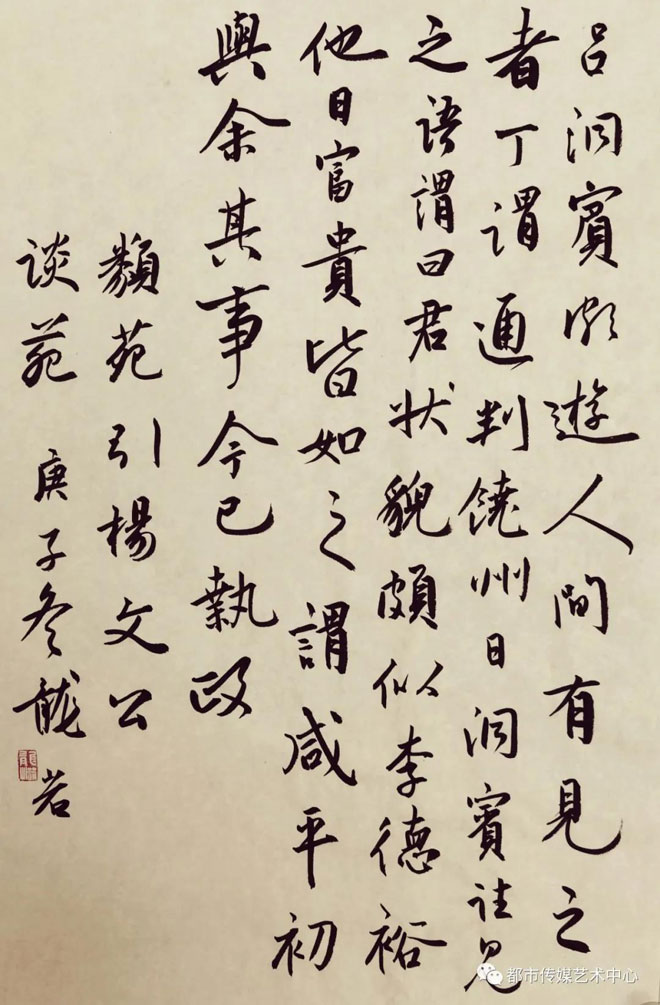 吕洞賓頗遊人間有見之
者丁謂通判饒州日洞賓往見
之語謂曰君狀貌頗似李德裕
他日富貴皆如之謂咸平初
與余其事今已執政
類苑引楊文公
談苑 庚子冬龍若
都市传媒艺术中心